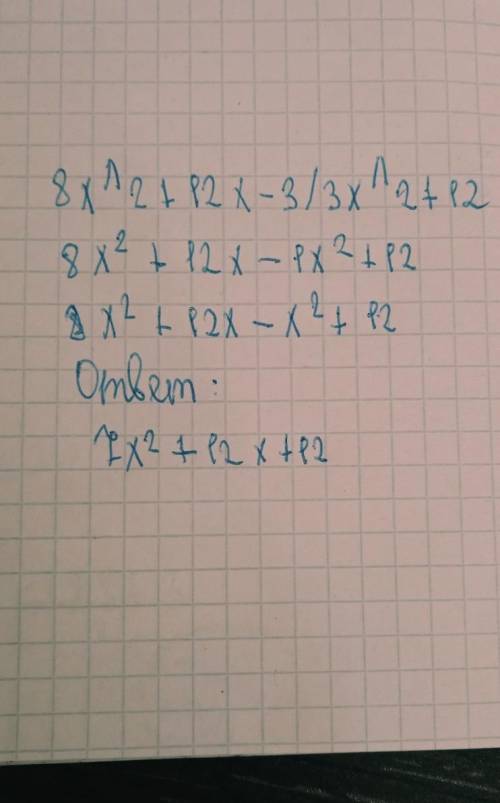 8x^2+12x-3/3x^2+12
8x² + 12x - 1x² + 12
8x² + 12x - x² + 12
Ответ:
7x² + 12x + 12